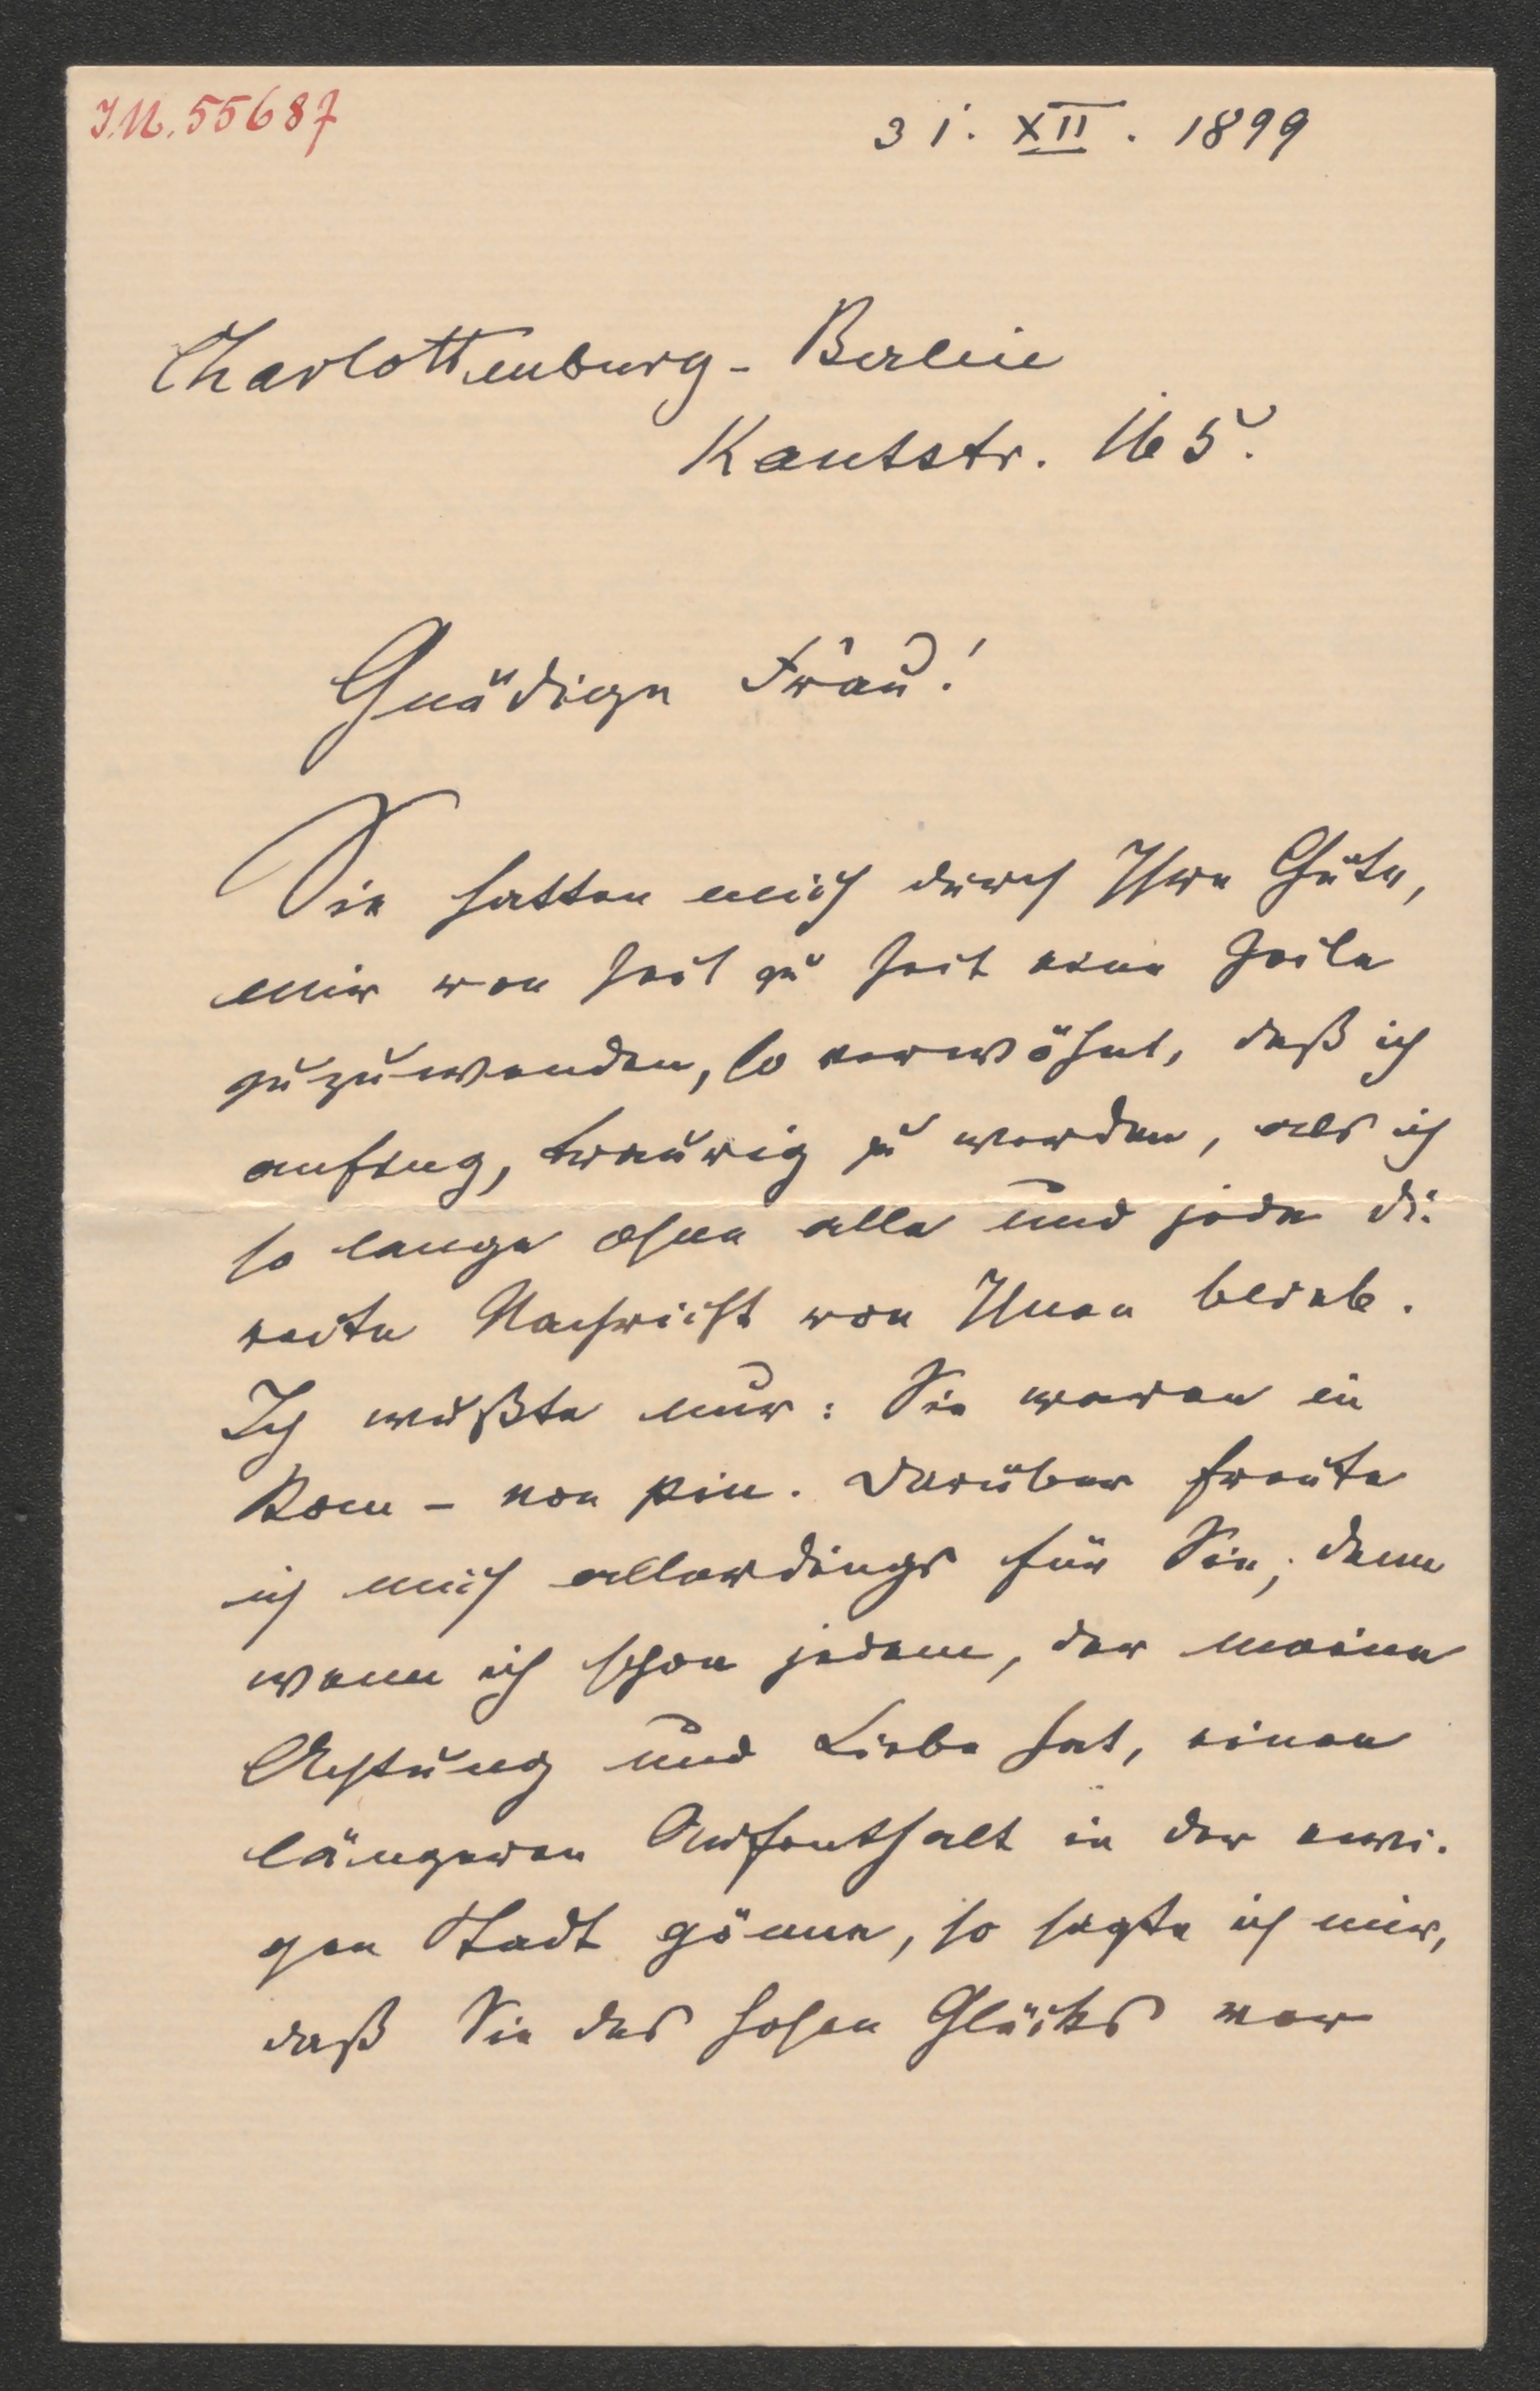 I.N. 55687
31. XII. 1899
Charlottenburg - Berlin
Kantstr. 165.
Gnädige Frau!
Sie hatten mich durch Ihre Güte,
mir von Zeit zu Zeit eine Zeile
zuzuwenden, so verwöhnt, daß ich
anfing, traurig zu werden, als ich
so lange ohne alle und jede di-
recte Nachricht von Ihnen blieb.
Ich wußte nur: Sie waren in
Rom - non più. Darüber freute
ich mich allerdings für Sie; denn
wenn ich schon jedem, der meine
Achtung und Liebe hat, einen
längeren Aufenthalt in der ewi-
gen Stadt gönne, so sagte ich mir,
daß Sie des hohen Glücks vor